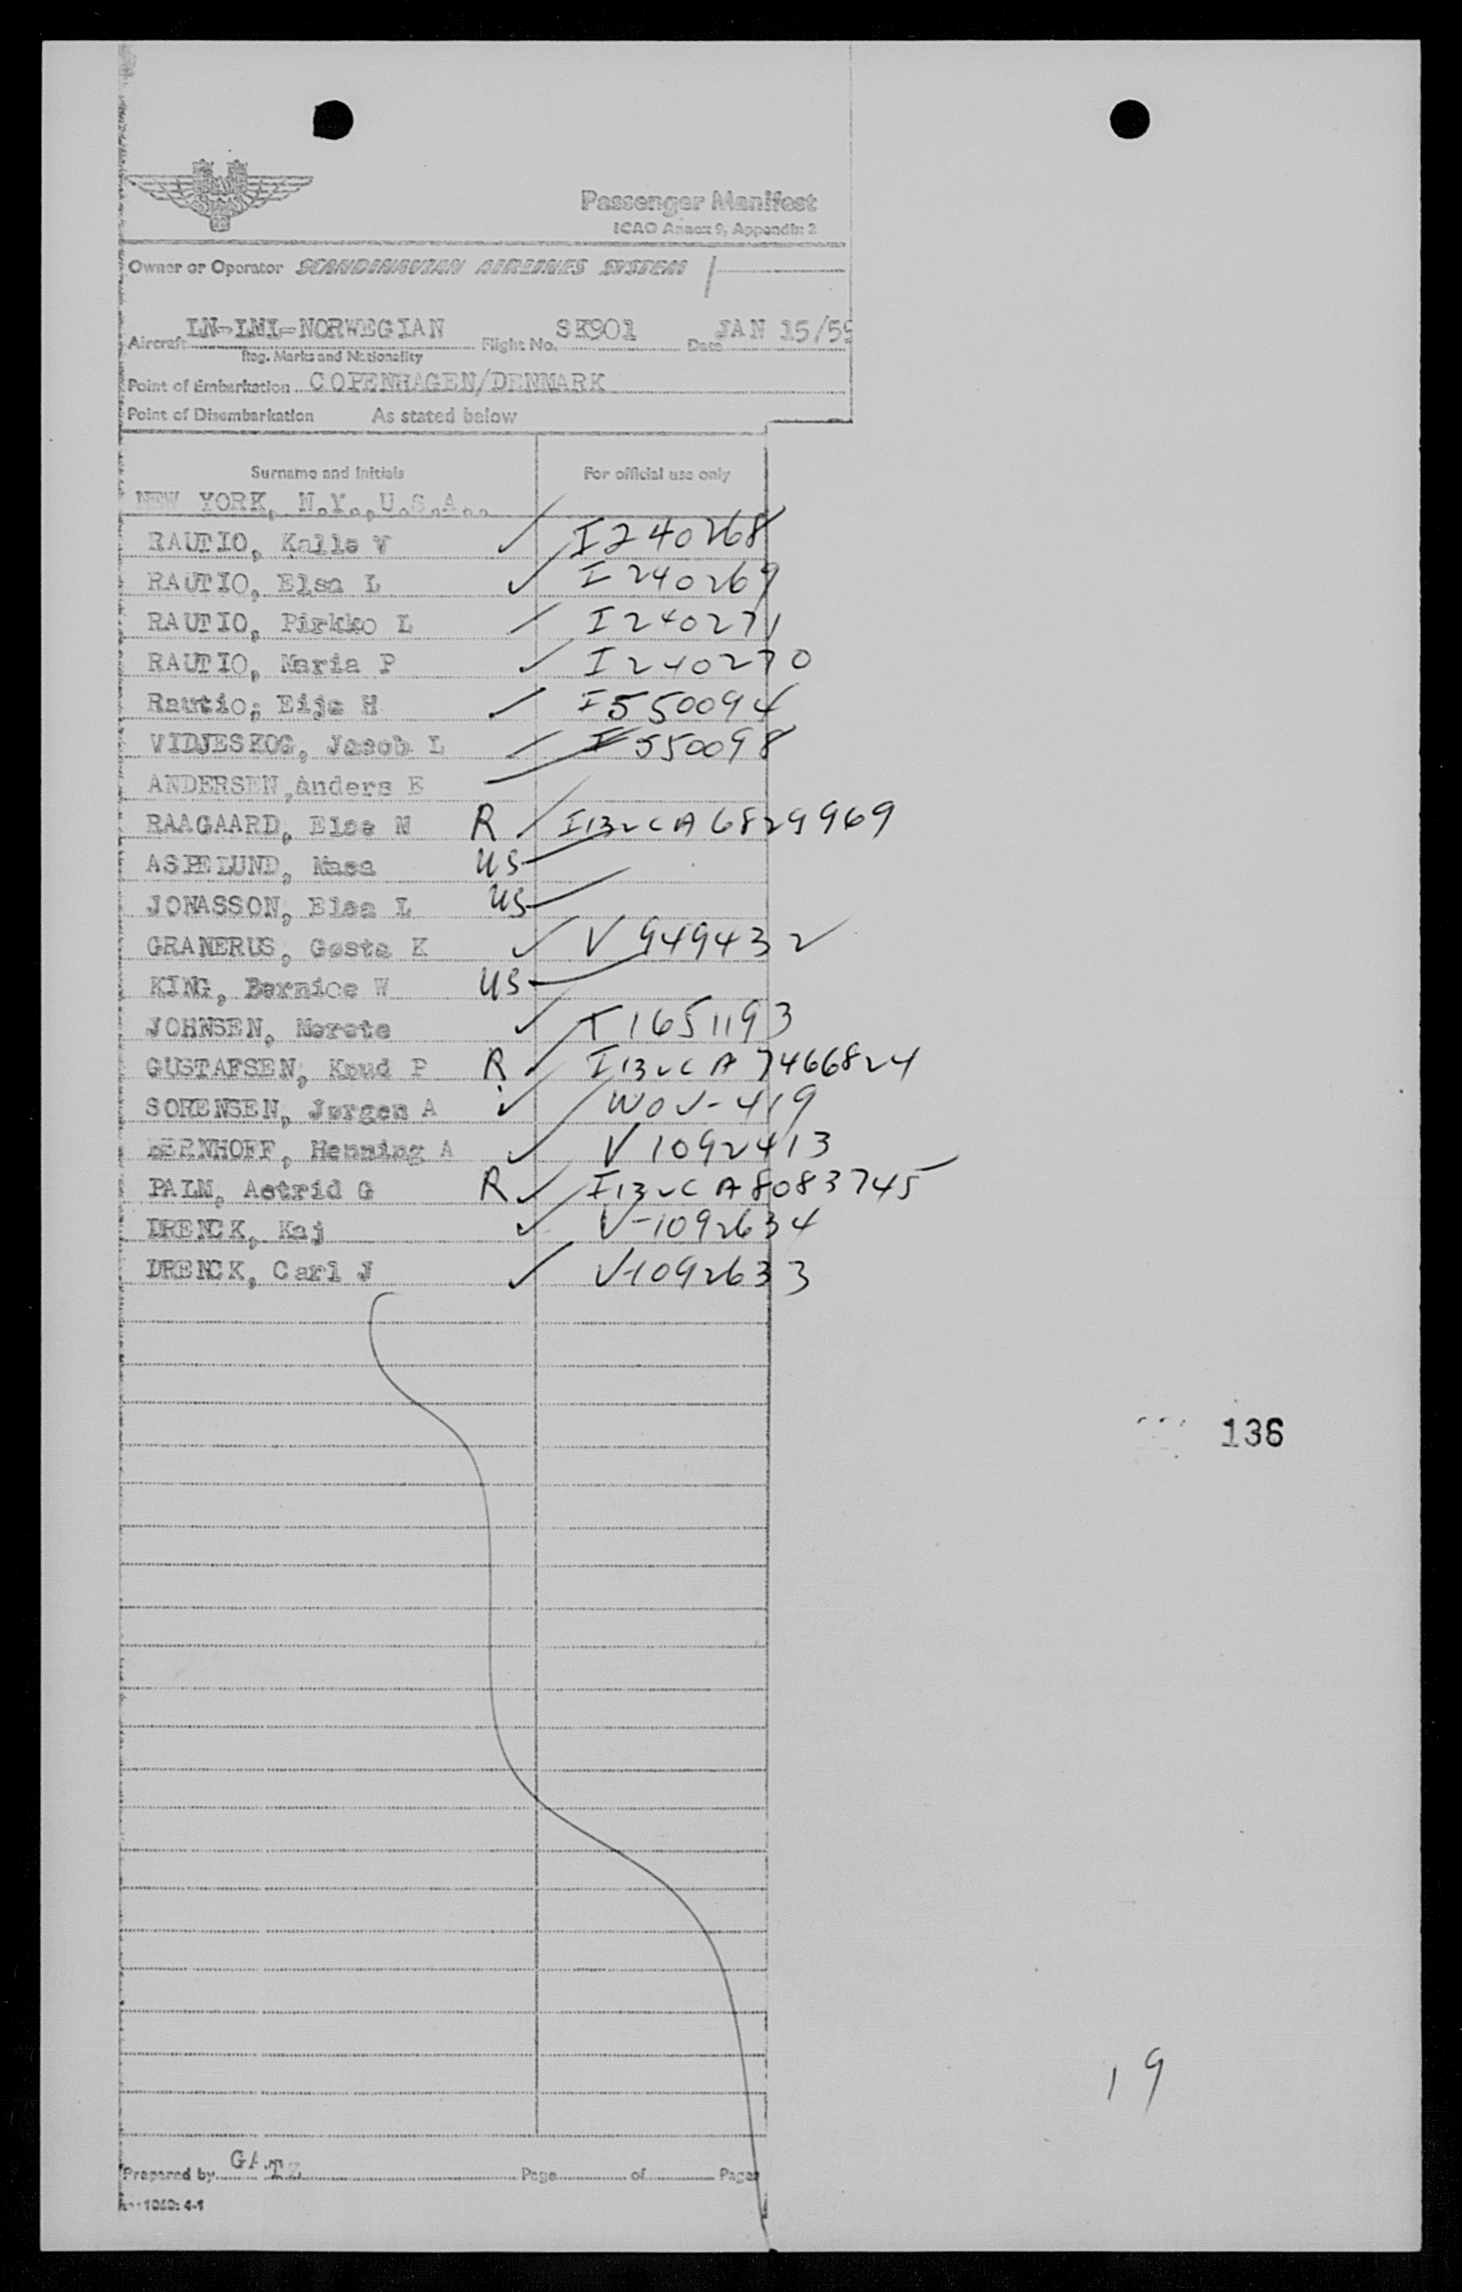 Passenger Manifest
ICAO Annex 9, Appendix 2
Owner or Operator SCANDINAVIAN AIRLINES SYSTEM
Aircraft LN-LMI-NORWEGIAN Flight No. SK901 Date JAN 15/59
Reg. Marks and Nationality
Point of Embarkation COPENHAGEN/DENMARK
Point of Disembarkation As stated below
Surname and Initials For official use only
NEW YORK, N.Y., U.S.A..
RAUTIO, Kalle V ✓ I240268
RAUTIO, Elsa L ✓ I240269
RAUTIO, Pirkko L ✓ I240271
RAUTIO, Maria P ✓ I240270
Rautio, Eija H ✓ I550094
VIDJESKOG, Jacob L ✓ I550098
ANDERSEN, Anders E
RAAGAARD, Else M R ✓ A6829969
ASPELUND, US
JONASSON, Elsa L US
GRANERUS, Gøsta K ✓ V949432
KING, Bernice W US
JOHNSEN, Merete ✓ T1651193
GUSTAFSEN, Knud P R ✓ A7466824
SORENSEN, Jørgen A ✓
BERNHOFF, Henning A ✓ V1092413
PALM, Astrid G R ✓ A8083745
DRENCK, Kaj ✓ V-1092634
DRENCK, Carl J ✓ V-1092633
136
19
Prepared by Page of Pages